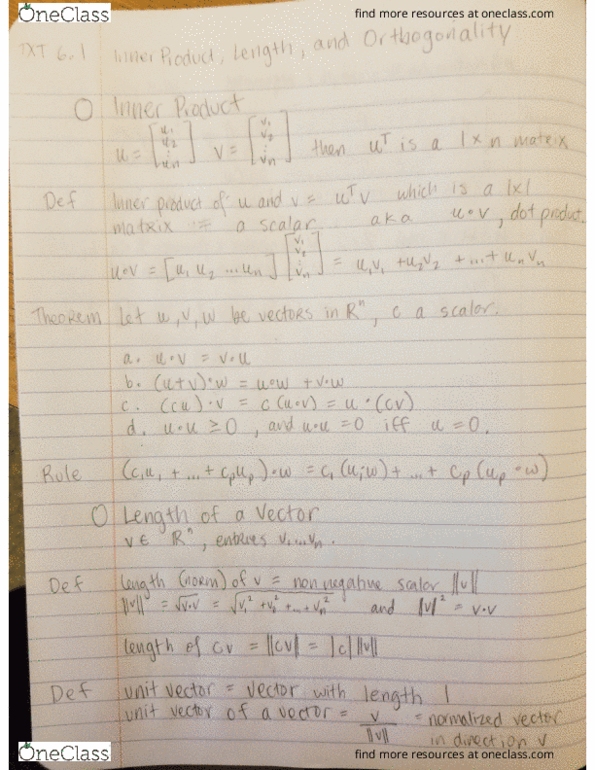 OneClass
find more resources at oneclass.com
TXT 6.1 Inner Product, Length, and Orthogonality
O Inner Product
u = [u₁ u₂ ⋮ uₙ] v = [v₁ v₂ ⋮ vₙ] then uᵀ is a 1 x n matrix
Def Inner product of u and v = uᵀv which is a 1x1
matrix = a scalar aka u•v, dot product.
u•v = [u₁ u₂ ... uₙ] [v₁ v₂ ⋮ vₙ] = u₁v₁ + u₂v₂ + ... + uₙvₙ
Theorem Let u, v, w be vectors in ℝⁿ, c a scalar.
a. u•v = v•u
b. (u+v)•w = u•w + v•w
c. (cu)•v = c(u•v) = u•(cv)
d. u•u ≥ 0, and u•u = 0 iff u = 0.
Rule (c₁u₁ + ... + cₚuₚ)•w = c₁(u₁•w) + ... + cₚ(uₚ•w)
O Length of a Vector
v ∈ ℝⁿ, entries v₁...vₙ.
Def length (norm) of v = nonnegative scalar ||v||
||v|| = √v•v = √v₁² + v₂² + ... + vₙ² and ||v||² = v•v
length of cv = ||cv|| = |c| ||v||
Def unit vector = vector with length 1
unit vector of a vector = v/||v|| = normalized vector
in direction v
OneClass
find more resources at oneclass.com